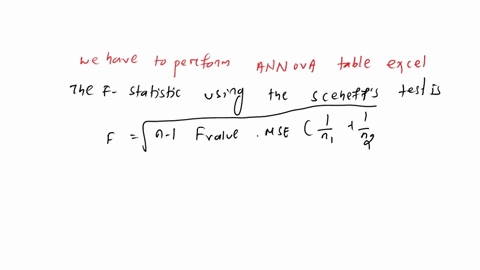 we have to perform ANNOVA table excel
The F- statistic using the sceheff's test is
F = √n-1 Fvalue . MSE ( 1/n1 + 1/n2